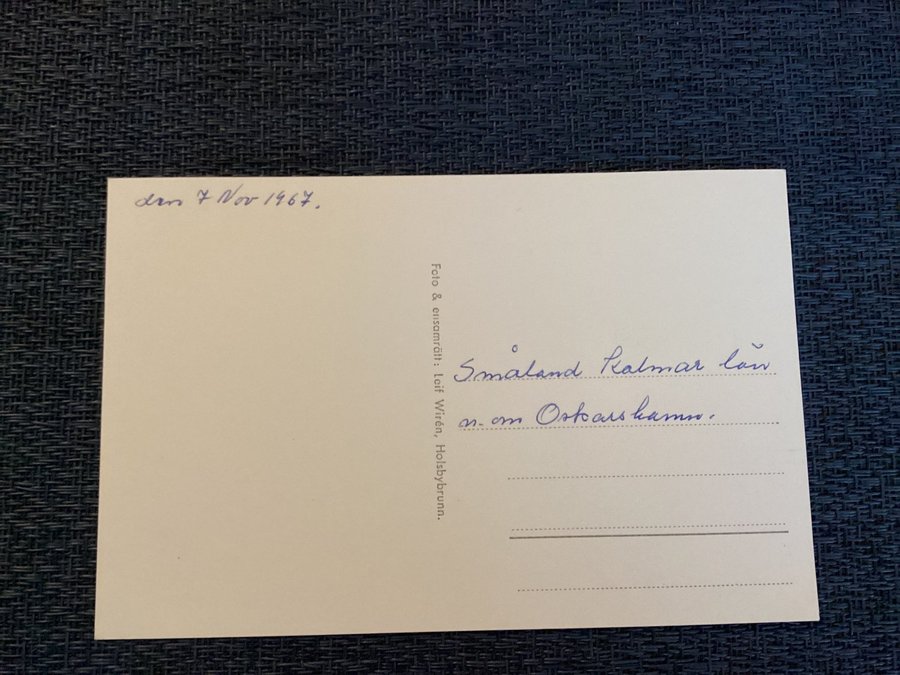 den 7 Nov 1967.
Foto & ensamrätt: Leif Wirén, Holsbybrunn.
Småland Kalmar län
n. om Oskarshamn.